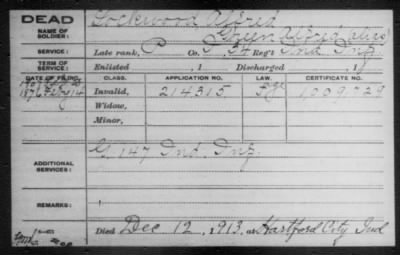 DEAD
Lockwood Alfred
NAME OF SOLDIER:
Green Alfred (alias)
SERVICE:
Late rank, P Co. 34 Reg't Ind Inf
TERM OF SERVICE:
Enlisted , 1 Discharged , 1
DATE OF FILING. CLASS. APPLICATION NO. LAW. CERTIFICATE NO.
Invalid, 214315 1,009,729
Widow,
Minor,
ADDITIONAL SERVICES:
G 147 Ind. Inf.
REMARKS:
Died Dec 12, 1913, at Hartford City Ind